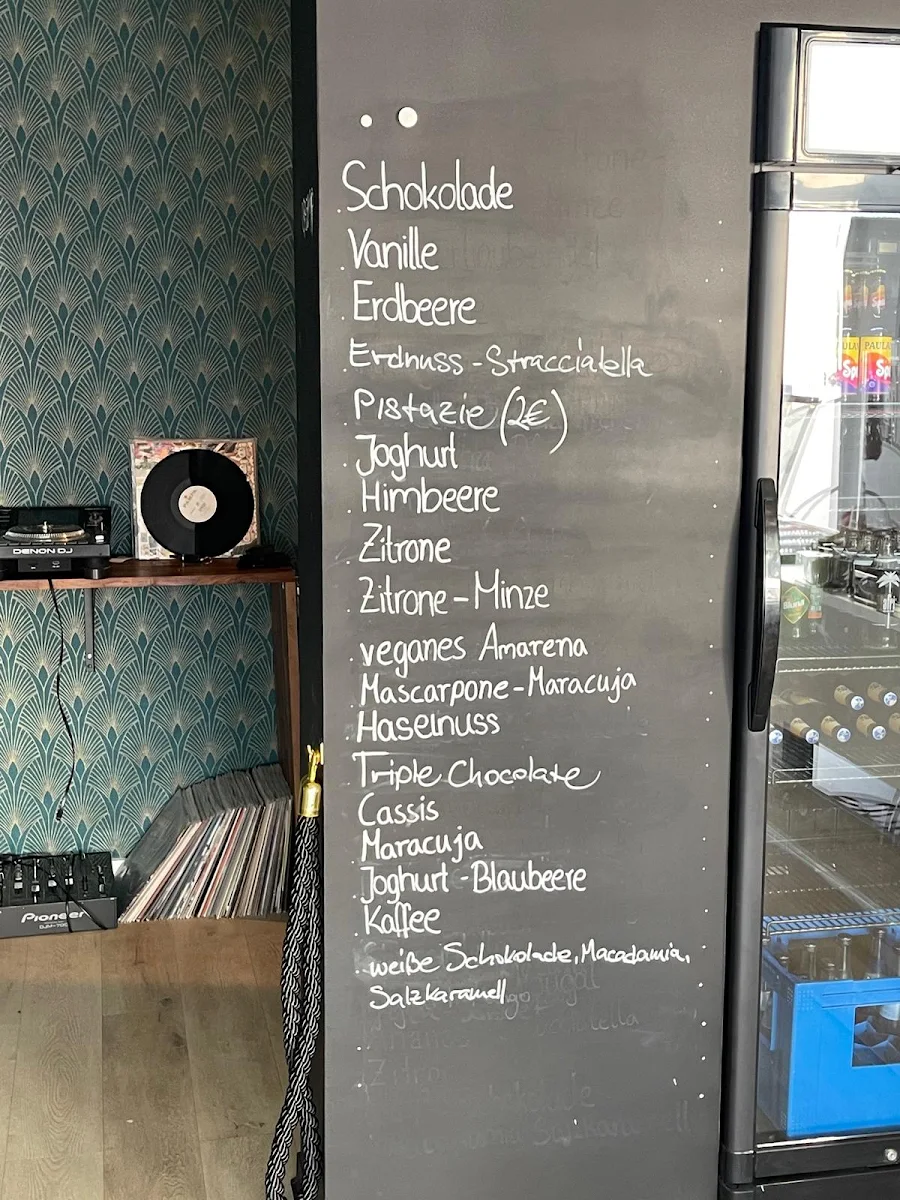 Schokolade
Vanille
Erdbeere
Erdnuss-Stracciatella
Pistazie (2€)
Joghurt
Himbeere
Zitrone
Zitrone-Minze
veganes Amarena
Mascarpone-Maracuja
Haselnuss
Triple Chocolate
Cassis
Maracuja
Joghurt-Blaubeere
Kaffee
weiße Schokolade, Macadamia,
Salzkaramell
DENON DJ
Pioneer
PAULA
Sp